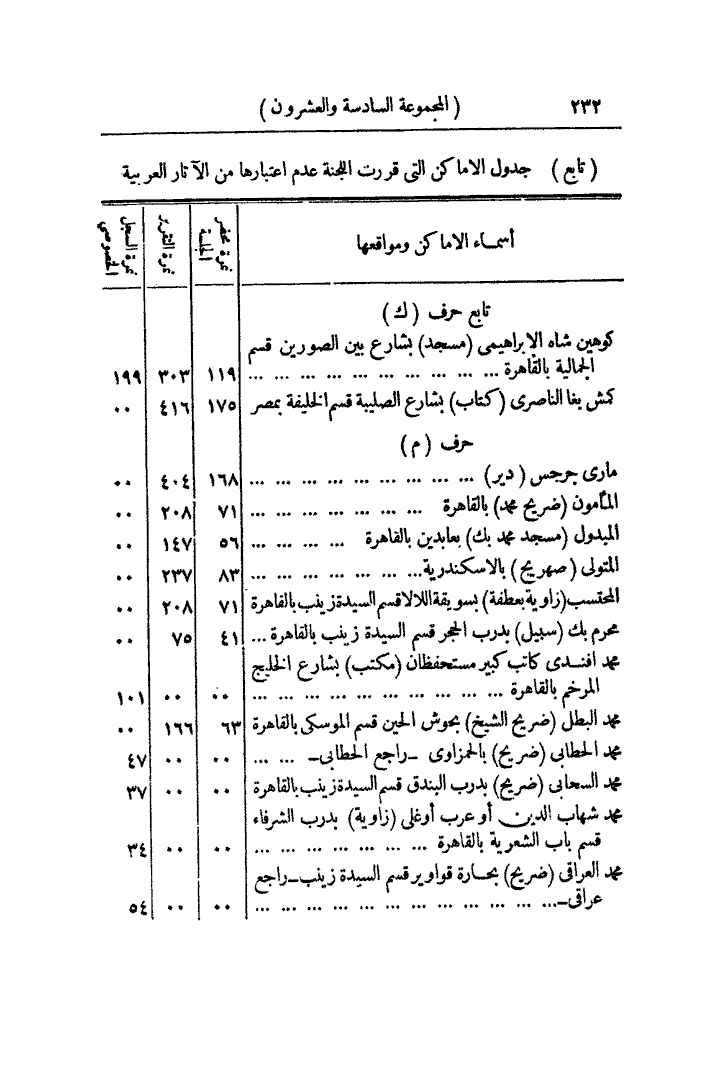 ٢٣٢ (المجموعة السادسة والعشرون)
(تابع) جدول الاماكن التى قررت اللجنة عدم اعتبارها من الآثار العربية
أسماء الاماكن ومواقعها
نمرة محضر الجلسة
نمرة التقرير
نمرة السجل الخصوصى
تابع حرف (ك)
كوهين شاه الابراهيمى (مسجد) بشارع بين الصورين قسم
الجمالية بالقاهرة ... ... ... ... ... ... ... ... ... ١١٩ ٣٠٣ ١٩٩
كمش بغا الناصرى (كتاب) بشارع الصليبة قسم الخليفة بمصر ١٧٥ ٤١٦ ٠٠
حرف (م)
مارى جرجس (دير) ... ... ... ... ... ... ... ... ... ١٦٨ ٤٠٤ ٠٠
المأمون (ضريح محمد) بالقاهرة ... ... ... ... ... ... ... ٧١ ٢٠٨ ٠٠
المبدول (مسجد محمد بك) بعابدين بالقاهرة ... ... ... ... ٥٦ ١٤٧ ٠٠
المتولى (صهريج) بالاسكندرية... ... ... ... ... ... ... ٨٣ ٢٣٧ ٠٠
المحتسب (زاوية بعطفة) بسويقة اللالا قسم السيدة زينب بالقاهرة ٧١ ٢٠٨ ٠٠
محرم بك (سبيل) بدرب الحجر قسم السيدة زينب بالقاهرة ... ٤١ ٧٥ ٠٠
محمد افندى كاتب كبير مستحفظان (مكتب) بشارع الخليج
المرخم بالقاهرة ... ... ... ... ... ... ... ... ... ... ٠٠ ٠٠ ١٠١
محمد البطل (ضريح الشيخ) بحوش الحين قسم الموسكى بالقاهرة ٦٣ ١٦٦ ٠٠
محمد الحطابى (ضريح) بالحمزاوى ـ راجع الحطابى ـ ... ... ٠٠ ٠٠ ٤٧
محمد السحابى (ضريح) بدرب البندق قسم السيدة زينب بالقاهرة ٠٠ ٠٠ ٣٧
محمد شهاب الدين أو عرب أوغلى (زاوية) بدرب الشرفاء
قسم باب الشعرية بالقاهرة ... ... ... ... ... ... ... ٠٠ ٠٠ ٣٤
محمد العراقى (ضريح) بحارة قواوير قسم السيدة زينب ـ راجع
عراقى ـ... ... ... ... ... ... ... ... ... ... ... ... ٠٠ ٠٠ ٥٤